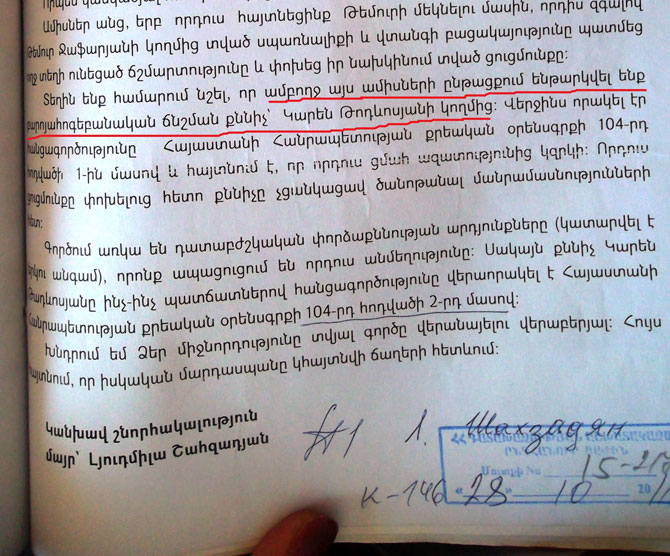 Ամիսներ անց, երբ որդուս հայտնեցինք Թեմուրի մեկնելու մասին, որդիս զգալով
Թեմուր Ջաֆարյանի կողմից տված սպառնալիքի և վտանգի բացակայությունը պատմեց
ողջ տեղի ունեցած ճշմարտությունը և փոխեց իր նախկինում տված ցուցմունքը:
Տեղին ենք համարում նշել, որ ամբողջ այս ամիսների ընթացքում ենթարկվել ենք
բարոյահոգեբանական ճնշման քննիչ՝ Կարեն Թադևոսյանի կողմից: Վերջինս որակել էր
հանցագործությունը Հայաստանի Հանրապետության քրեական օրենսգրքի 104-րդ
հոդվածի 1-ին մասով և հայտնում է, որ որդուս ցմահ ազատությունից կզրկի: Որդուս
ցուցմունքը փոխելուց հետո քննիչը չցանկացավ ծանոթանալ մանրամասնությունների
հետ:
Գործում առկա են դատաբժշկական փորձաքննության արդյունքները (կատարվել է
երկու անգամ), որոնք ապացուցում են որդուս անմեղությունը: Սակայն քննիչ Կարեն
Թադևոսյանը ինչ-ինչ պատճառներով հանցագործությունը վերաորակել է Հայաստանի
Հանրապետության քրեական օրենսգրքի 104-րդ հոդվածի 2-րդ մասով:
Խնդրում եմ Ձեր միջնորդությունը տվյալ գործը վերանայելու վերաբերյալ: Հույս
հայտնում, որ իսկական մարդասպանը կհայտնվի ճաղերի հետևում:
Կանխավ շնորհակալություն
մայր՝ Լյուդմիլա Շահզադյան
Л. Шахзадян
Մուտքի No 15-21
К-146 «28» 10 20